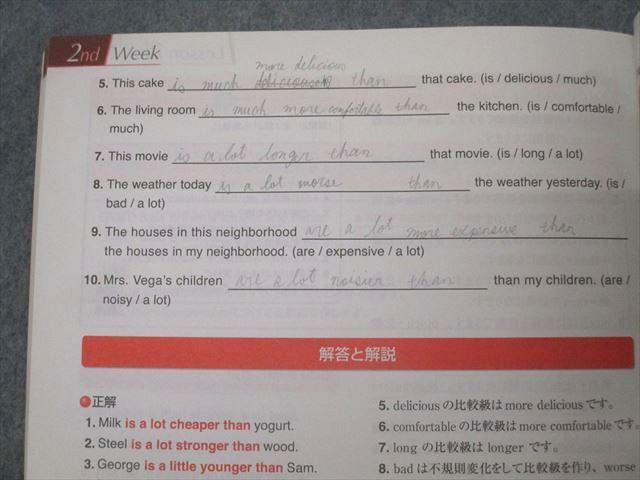 2nd Week
more delicious
5. This cake is much than that cake. (is / delicious / much)
6. The living room is much more comfortable than the kitchen. (is / comfortable /
much)
7. This movie is a lot longer than that movie. (is / long / a lot)
8. The weather today is a lot morse than the weather yesterday. (is /
bad / a lot)
9. The houses in this neighborhood are a lot more expensive than
the houses in my neighborhood. (are / expensive / a lot)
10. Mrs. Vega's children are a lot noisier than than my children. (are /
noisy / a lot)
解答と解説
正解
1. Milk is a lot cheaper than yogurt.
2. Steel is a lot stronger than wood.
3. George is a little younger than Sam.
5. delicious の比較級は more delicious です。
6. comfortable の比較級は more comfortable です。
7. long の比較級は longer です。
8. bad は不規則変化をして比較級を作り、worse